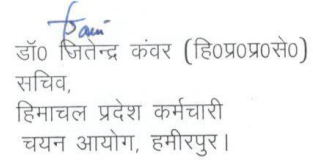 डॉ0 जितेन्द्र कंवर (हि0प्र0प्र0से0)
सचिव,
हिमाचल प्रदेश कर्मचारी
चयन आयोग, हमीरपुर।